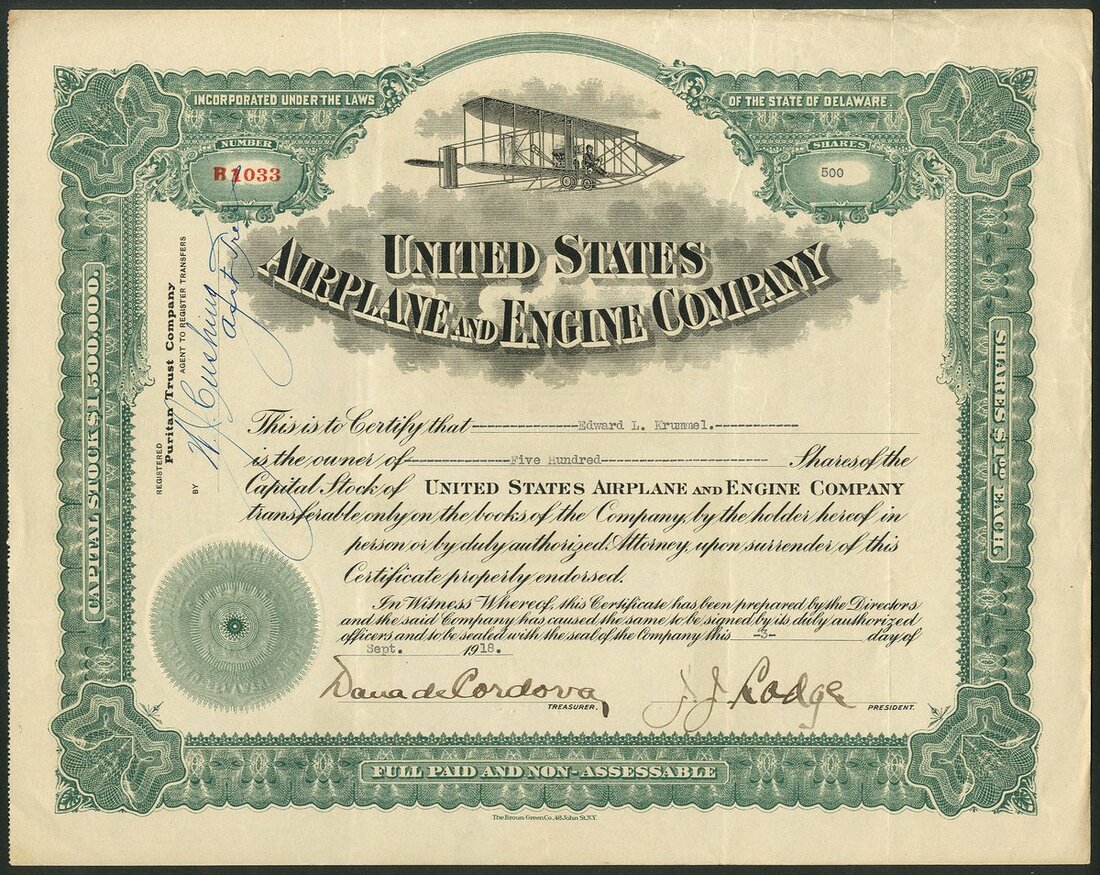 INCORPORATED UNDER THE LAWS
OF THE STATE OF DELAWARE.
NUMBER
B1033
SHARES
500
UNITED STATES
AIRPLANE AND ENGINE COMPANY
CAPITAL STOCK $1,500,000.
SHARES $1.00 EACH.
REGISTERED
Puritan Trust Company
AGENT TO REGISTER TRANSFERS
BY
Cushing
This is to Certify that Edward L. Krummel.
is the owner of Five Hundred Shares of the
Capital Stock of UNITED STATES AIRPLANE AND ENGINE COMPANY
transferable only on the books of the Company, by the holder hereof in
person or by duly authorized Attorney, upon surrender of this
Certificate properly endorsed.
In Witness Whereof, this Certificate has been prepared by the Directors
and the said Company has caused the same to be signed by its duly authorized
officers and to be sealed with the seal of the Company this -3- day of
Sept. 1918.
Dana de Cordova
TREASURER.
J. J. Lodge
PRESIDENT.
FULL PAID AND NON-ASSESSABLE
The Broun-Green Co., 48 John St. N.Y.